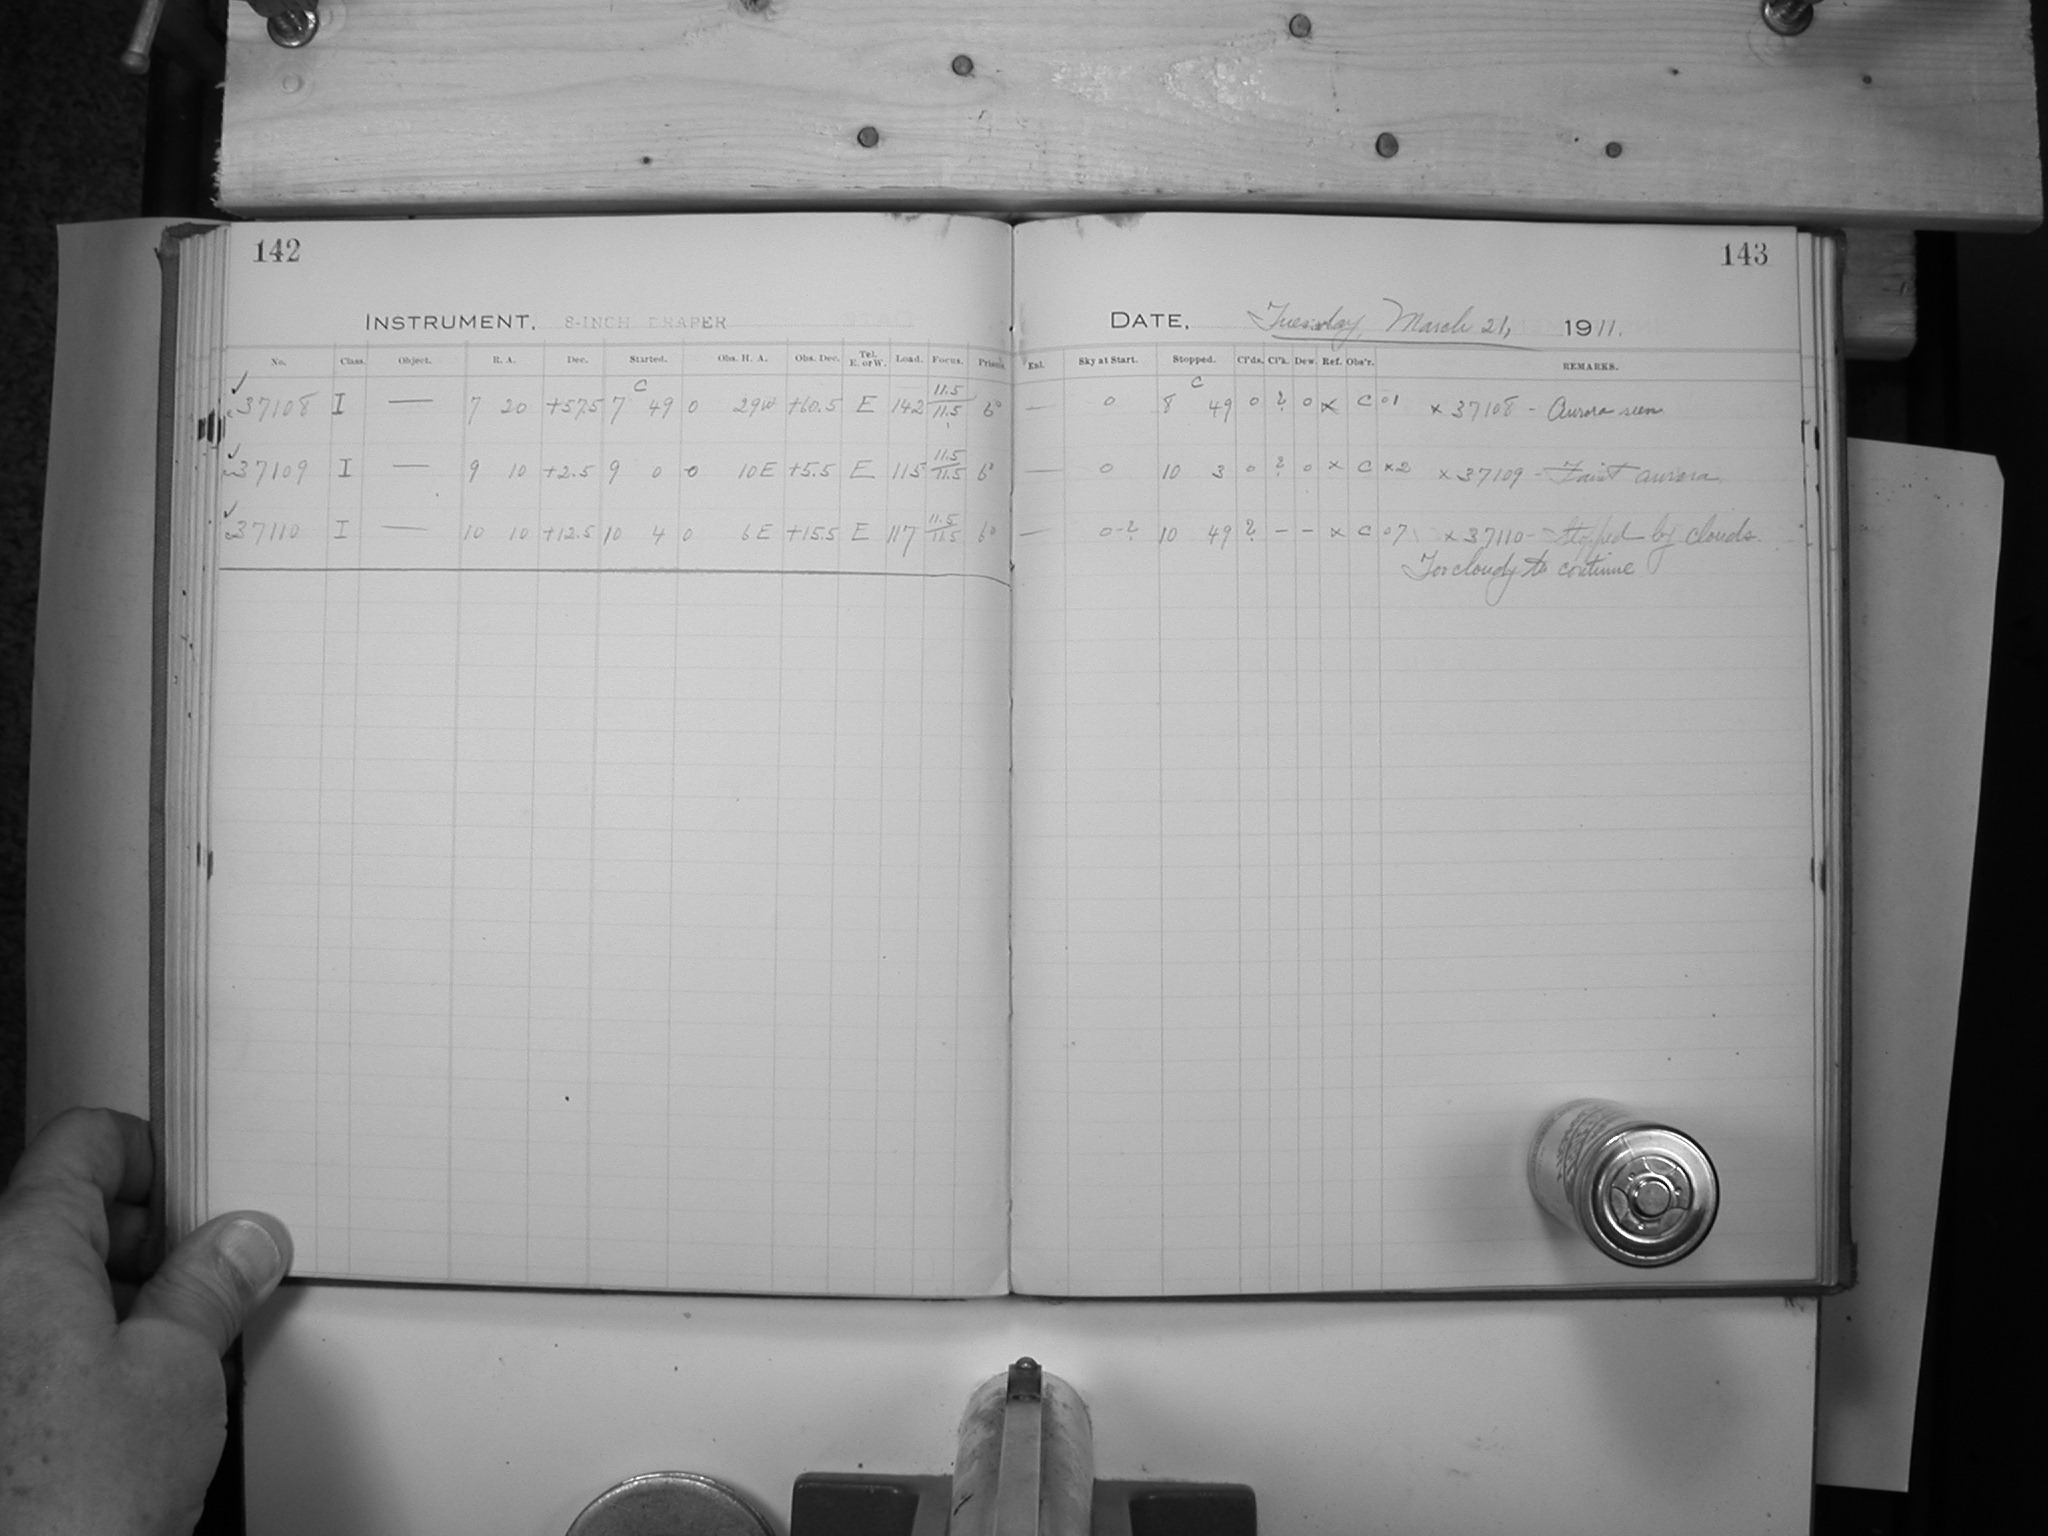 142
143
INSTRUMENT, 8-INCH DRAPER
DATE, Tuesday, March 21, 1911.
No. Class. Object. R. A. Dec. Started. Obs. H. A. Obs. Dec. Tel. E. or W. Load. Focus. Prisms.
Enl. Sky at Start. Stopped. Cl'ds. Cl'k. Dew. Ref. Obs'r. REMARKS.
C
C
✓ 37108 I — 7 20 +57.5 7 49 0 29W +60.5 E 142 11.5/11.5 6°
— 0 8 49 0 ? 0 x C 01 x 37108 - Aurora seen
✓ 37109 I — 9 10 +2.5 9 0 0 10E +5.5 E 115 11.5/11.5 6°
— 0 10 3 0 ? 0 x C x2 x 37109 - Faint aurora
✓ 37110 I — 10 10 +12.5 10 4 0 6E +15.5 E 117 11.5/11.5 6°
— 0-? 10 49 ? - - x C 07 x 37110 - Stopped by clouds.
Too cloudy to continue